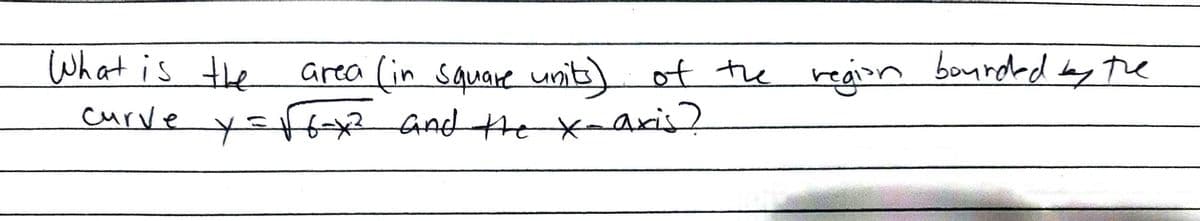 What is the area (in square units) of the region bounded by the
curve y = √6-x² and the x-axis?